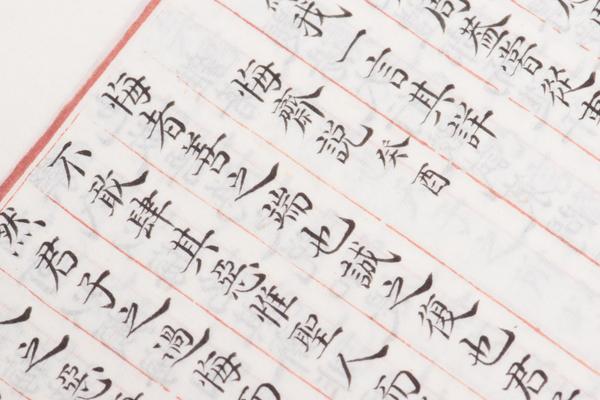 蓋嘗從
我一言其詳
悔齋説 癸酉
悔者善之端也誠之復也君
不敢肆其惡惟聖人而
然君子之過悔而
之惡